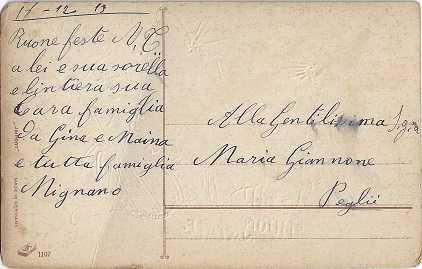 17-12 13
Buone feste N. C.
a lei e sua sorella
e lintiera sua
Cara famiglia
da Gina e Maina
e tutta famiglia
Mignano
Alla Gentilissima Sig.na
Maria Giannone
Peglü
MADE IN GERMANY
1107
BUON